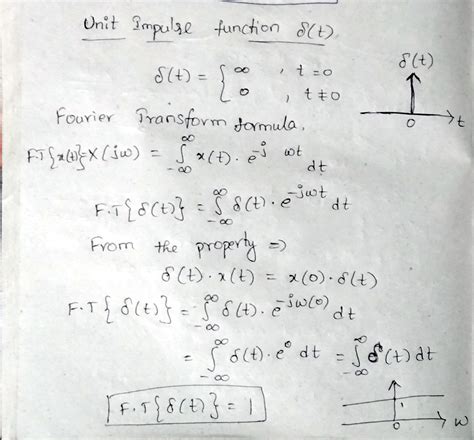 Unit Impulse function δ(t).
δ(t) = { ∞ , t = 0
0 , t ≠ 0
δ(t)
0 t
Fourier Transform formula,
F.T{x(t)}=X(jω) = ∫_{-∞}^{∞} x(t). e^{-jωt} dt
F.T{δ(t)} = ∫_{-∞}^{∞} δ(t). e^{-jωt} dt
From the property ⇒
δ(t). x(t) = x(0). δ(t)
F.T{δ(t)} = ∫_{-∞}^{∞} δ(t). e^{-jω(0)} dt
= ∫_{-∞}^{∞} δ(t). e^{0} dt = ∫_{-∞}^{∞} δ(t) dt
F.T{δ(t)} = 1
1
0 ω